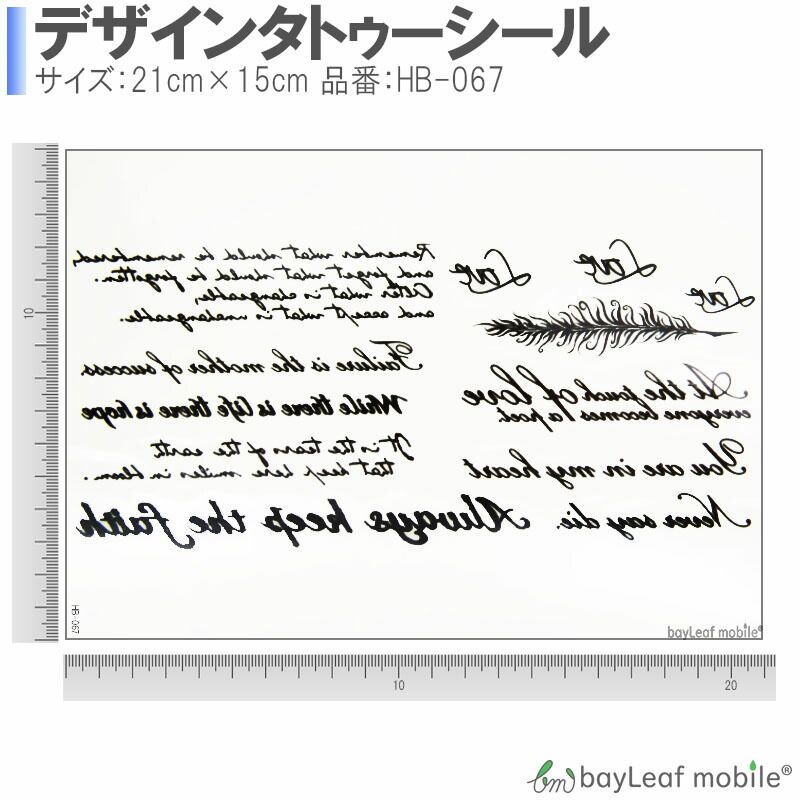 デザインタトゥーシール
サイズ：21cm×15cm 品番：HB-067
Remember what should be remembered,
and forget what should be forgotten.
Alter what is changeable,
and accept what is unchangeable.
Love
Love
Love
Failure is the mother of success
While there is life there is hope
It is the tears of the earth
that keep here smiles in bloom.
At the touch of love
everyone becomes a poet.
You are in my heart
Always keep the faith
Never say die.
HB-067
bayLeaf mobile®
10
10
20
bm bayLeaf mobile®